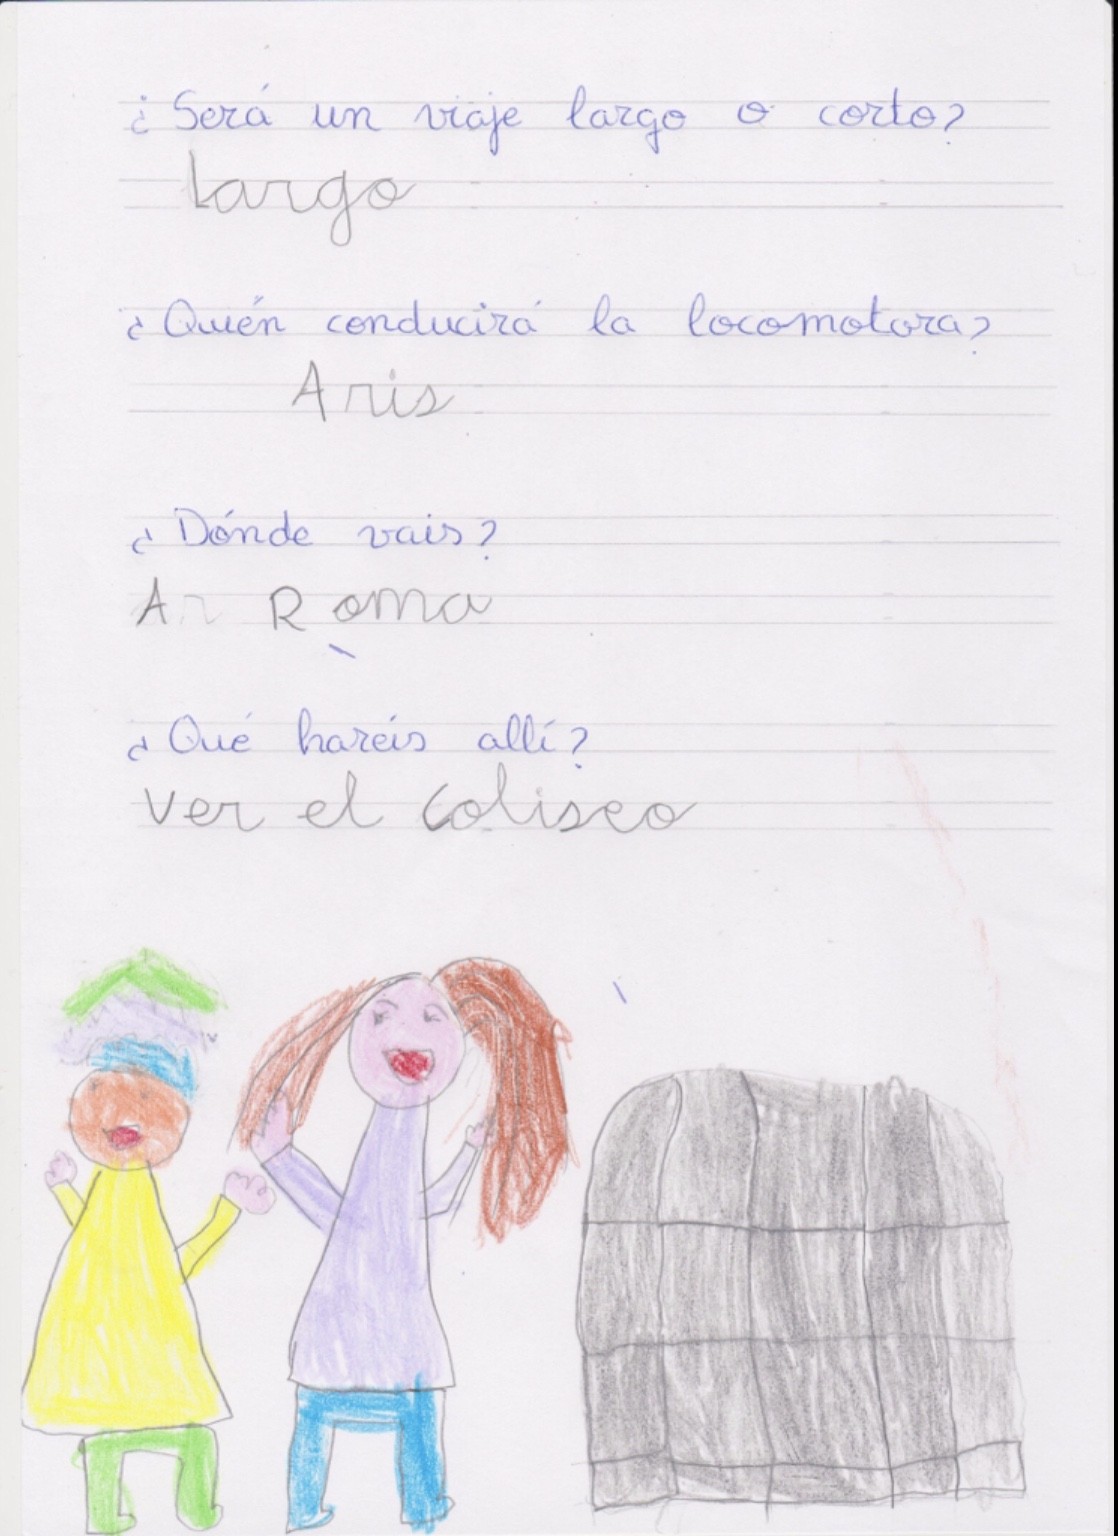 ¿Será un viaje largo o corto?
Largo
¿Quién conducirá la locomotora?
Aris
¿Dónde vais?
A Roma
¿Qué haréis allí?
Ver el Coliseo